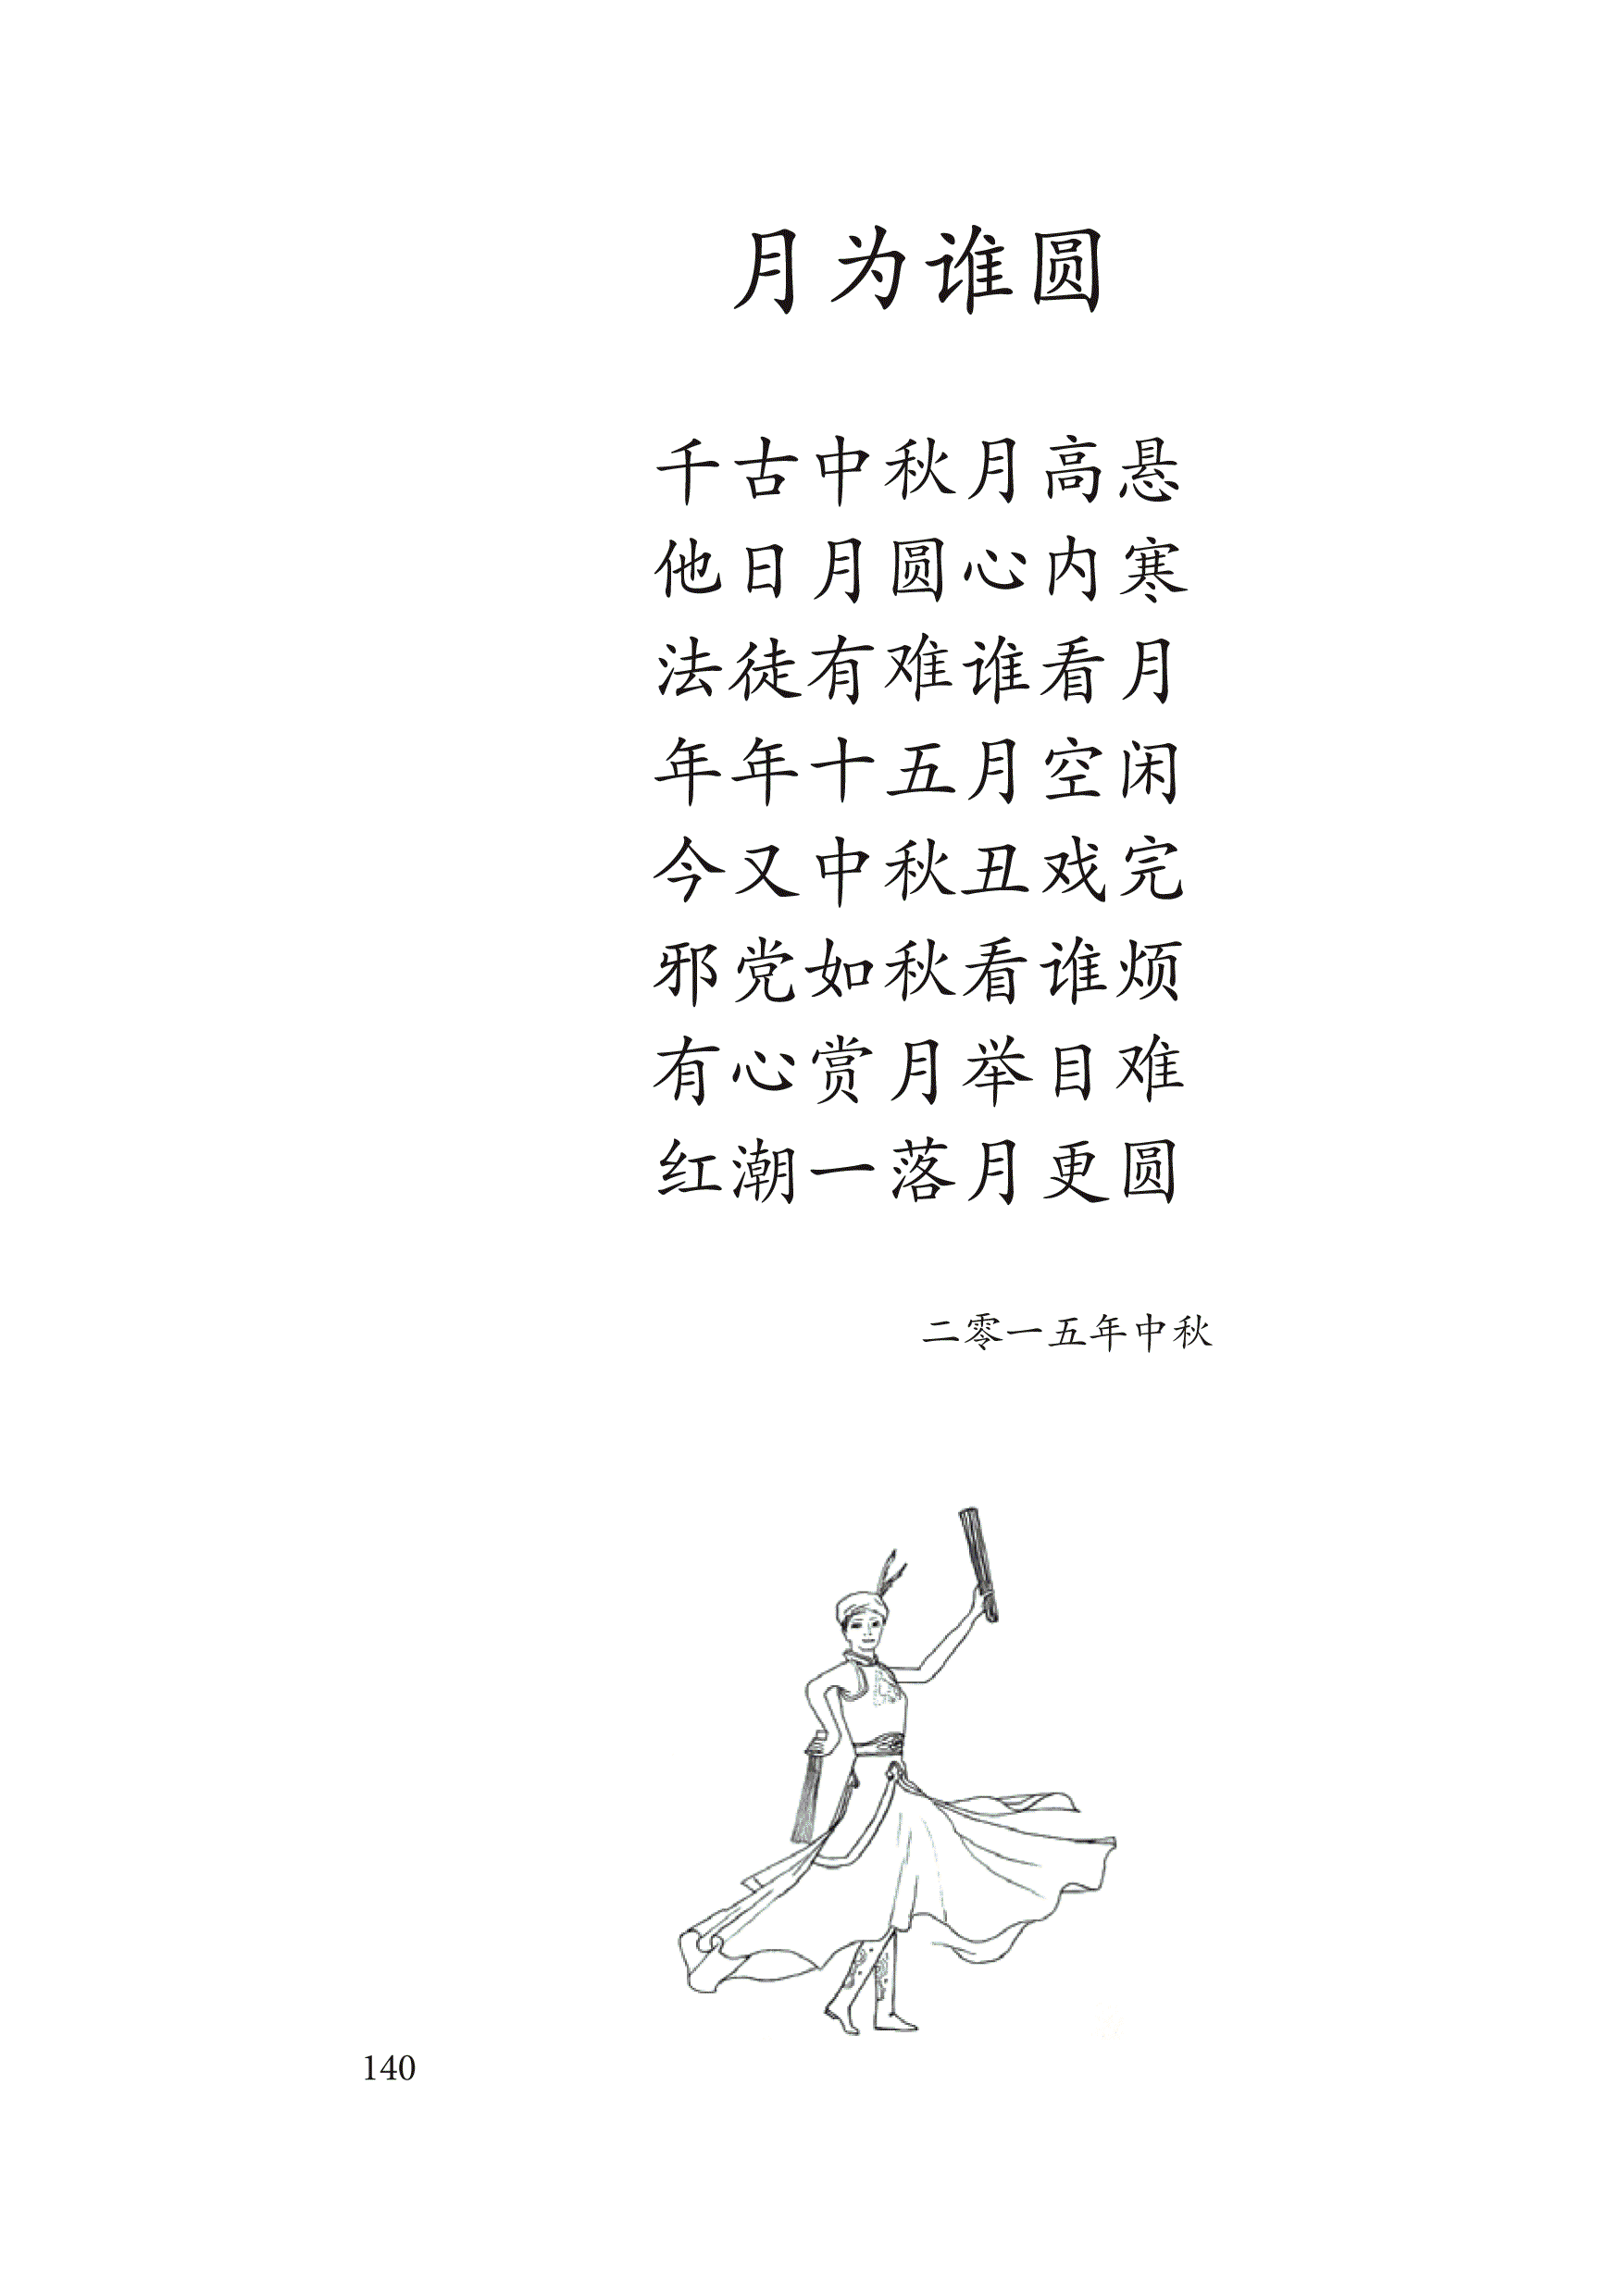 月为谁圆
千古中秋月高悬
他日月圆心内寒
法徒有难谁看月
年年十五月空闲
今又中秋丑戏完
邪党如秋看谁烦
有心赏月举目难
红潮一落月更圆
二零一五年中秋
140